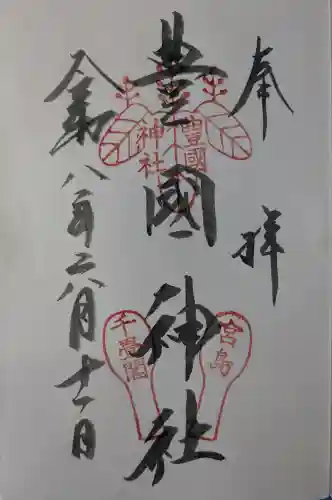 奉拝
豊國神社
令和八年二月十一日
豐國
神社
宮島
千畳閣